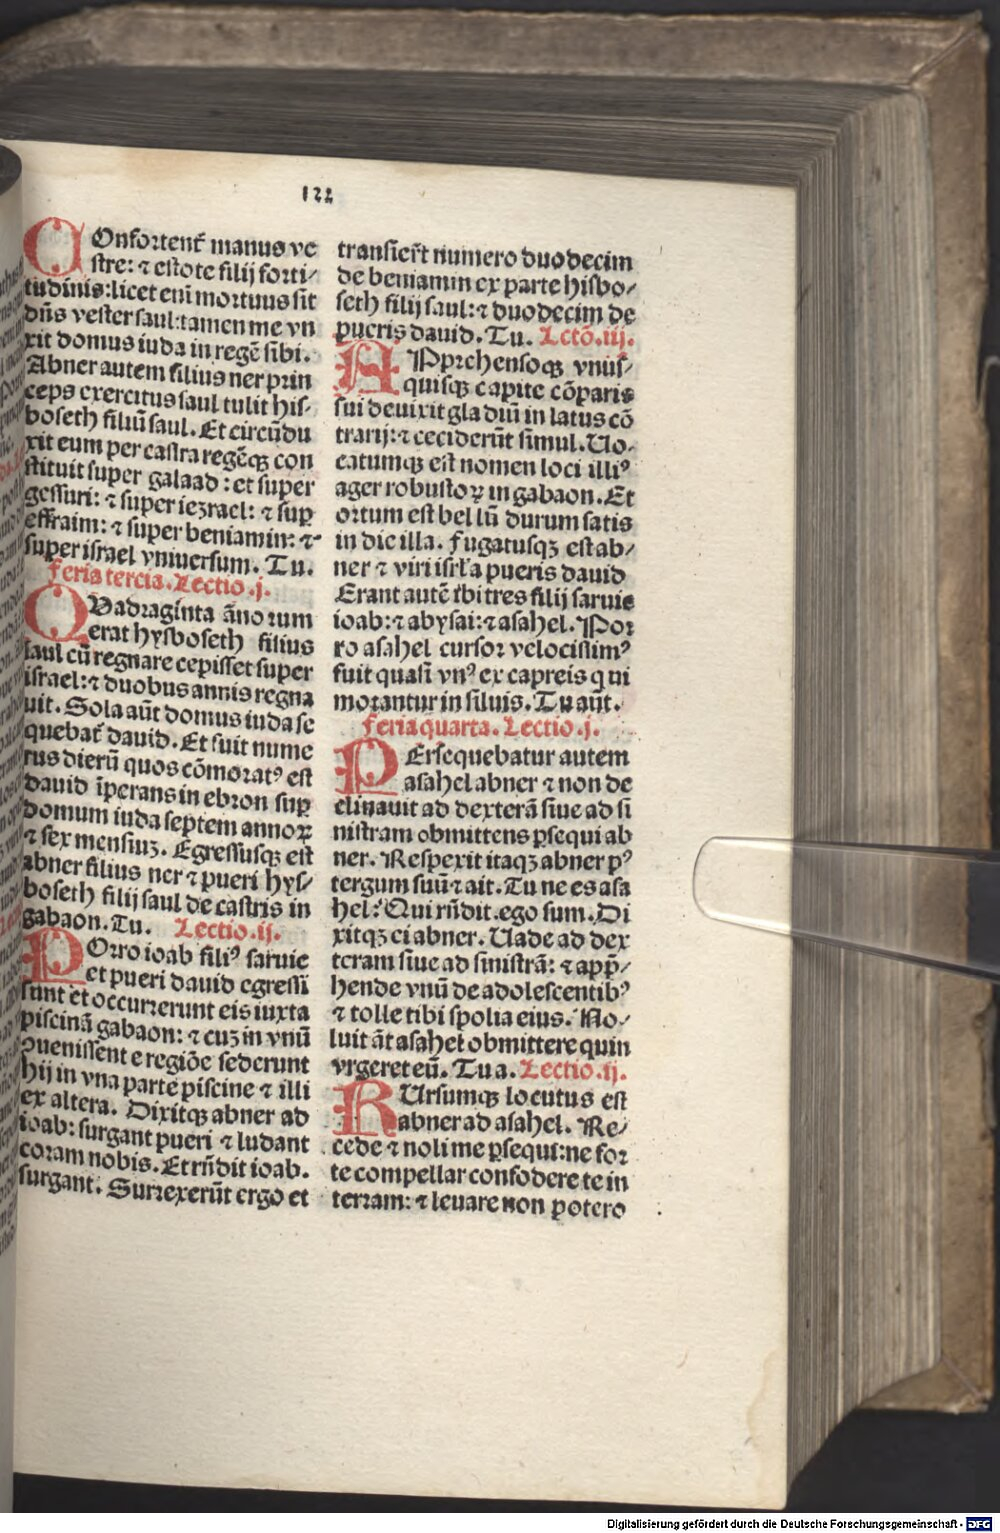 122
COnfortent᷑ manus ve
stre: ⁊ estote filij forti⸗
tudinis: licet eni᷑ mortuus sit
dn̄s vester saul: tamen me vn
xit domus iuda in regē sibi.
Abner autem filius ner prin
ceps exercitus saul tulit his⸗
boseth filiū saul. Et circūdu
xit eum per castra regēqꝫ con
stituit super galaad: et super
gessuri: ⁊ super iezrael: ⁊ suꝑ
effraim: ⁊ super beniamin: ⁊
super israel vniuersum. Tu.
Feria tercia. Lectio .j.
QVadraginta āno rum
erat hysboseth filius
saul cū regnare cepisset super
israel: ⁊ duobus annis regna
uit. Sola aūt domus iuda se
quebat᷑ dauid. Et fuit nume
rus dierū quos cōmoratꝰ est
dauid īperans in ebron suꝑ
domum iuda septem annoꝝ
⁊ sex mensiuꝫ. Egressusqꝫ est
abner filius ner ⁊ pueri hys⸗
boseth filij saul de castris in
gabaon. Tu. Lectio .ij.
POrro ioab filiꝰ saruie
et pueri dauid egressi
sunt et occurrerunt eis iuxta
piscinā gabaon: ⁊ cuꝫ in vnū
ꝯuenissent e regiōe sederunt
hij in vna parte piscine ⁊ illi
ex altera. Dixitqꝫ abner ad
ioab: surgant pueri ⁊ ludant
coram nobis. Et rn̄dit ioab.
surgant. Surrexerūt ergo et
transier̄t numero duodecim
de beniamin ex parte hisbo⸗
seth filij saul: ⁊ duodecim de
pueris dauid. Tu. Lectō .iij.
APprehensoqꝫ vnus⸗
quisqꝫ capite cōparis
sui deuixit gla diū in latus cō
trarij: ⁊ ceciderūt simul. Uo⸗
catumqꝫ est nomen loci illiꝰ
ager robustoꝝ in gabaon. Et
ortum est bel lū durum satis
in die illa. Fugatusqꝫ est ab⸗
ner ⁊ viri isrl̄ a pueris dauid
Erant autē ibi tres filij saruie
ioab: ⁊ abysai: ⁊ asahel. Por
ro asahel cursor velocissimꝰ
fuit quasi vnꝰ ex capreis q ui
morantur in siluis. Tu aūt.
Feria quarta. Lectio .j.
PErsequebatur autem
asahel abner ⁊ non de
clinauit ad dexterā siue ad si
nistram obmittens ꝑsequi ab
ner. Respexit itaqꝫ abner pꝰ
tergum suū ⁊ ait. Tu ne es asa
hel: Qui rn̄dit. ego sum. Di
xitqꝫ ei abner. Uade ad dex
teram siue ad sinistrā: ⁊ app̄⸗
hende vnū de adolescentibꝰ
⁊ tolle tibi spolia eius. No⸗
luit āt asahel obmittere quin
vrgeret eū. Tu a. Lectio .ij.
RUrsumqꝫ locutus est
abner ad asahel. Re⸗
cede ⁊ noli me ꝑsequi: ne for
te compellar confodere te in
terram: ⁊ leuare non potero
Digitalisierung gefördert durch die Deutsche Forschungsgemeinschaft - DFG